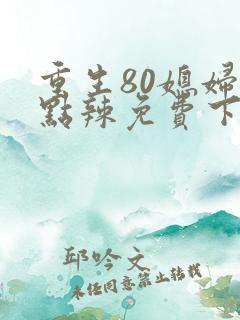 重生80媳婦
點辣免費下
邱吟文
未任同意禁止转载